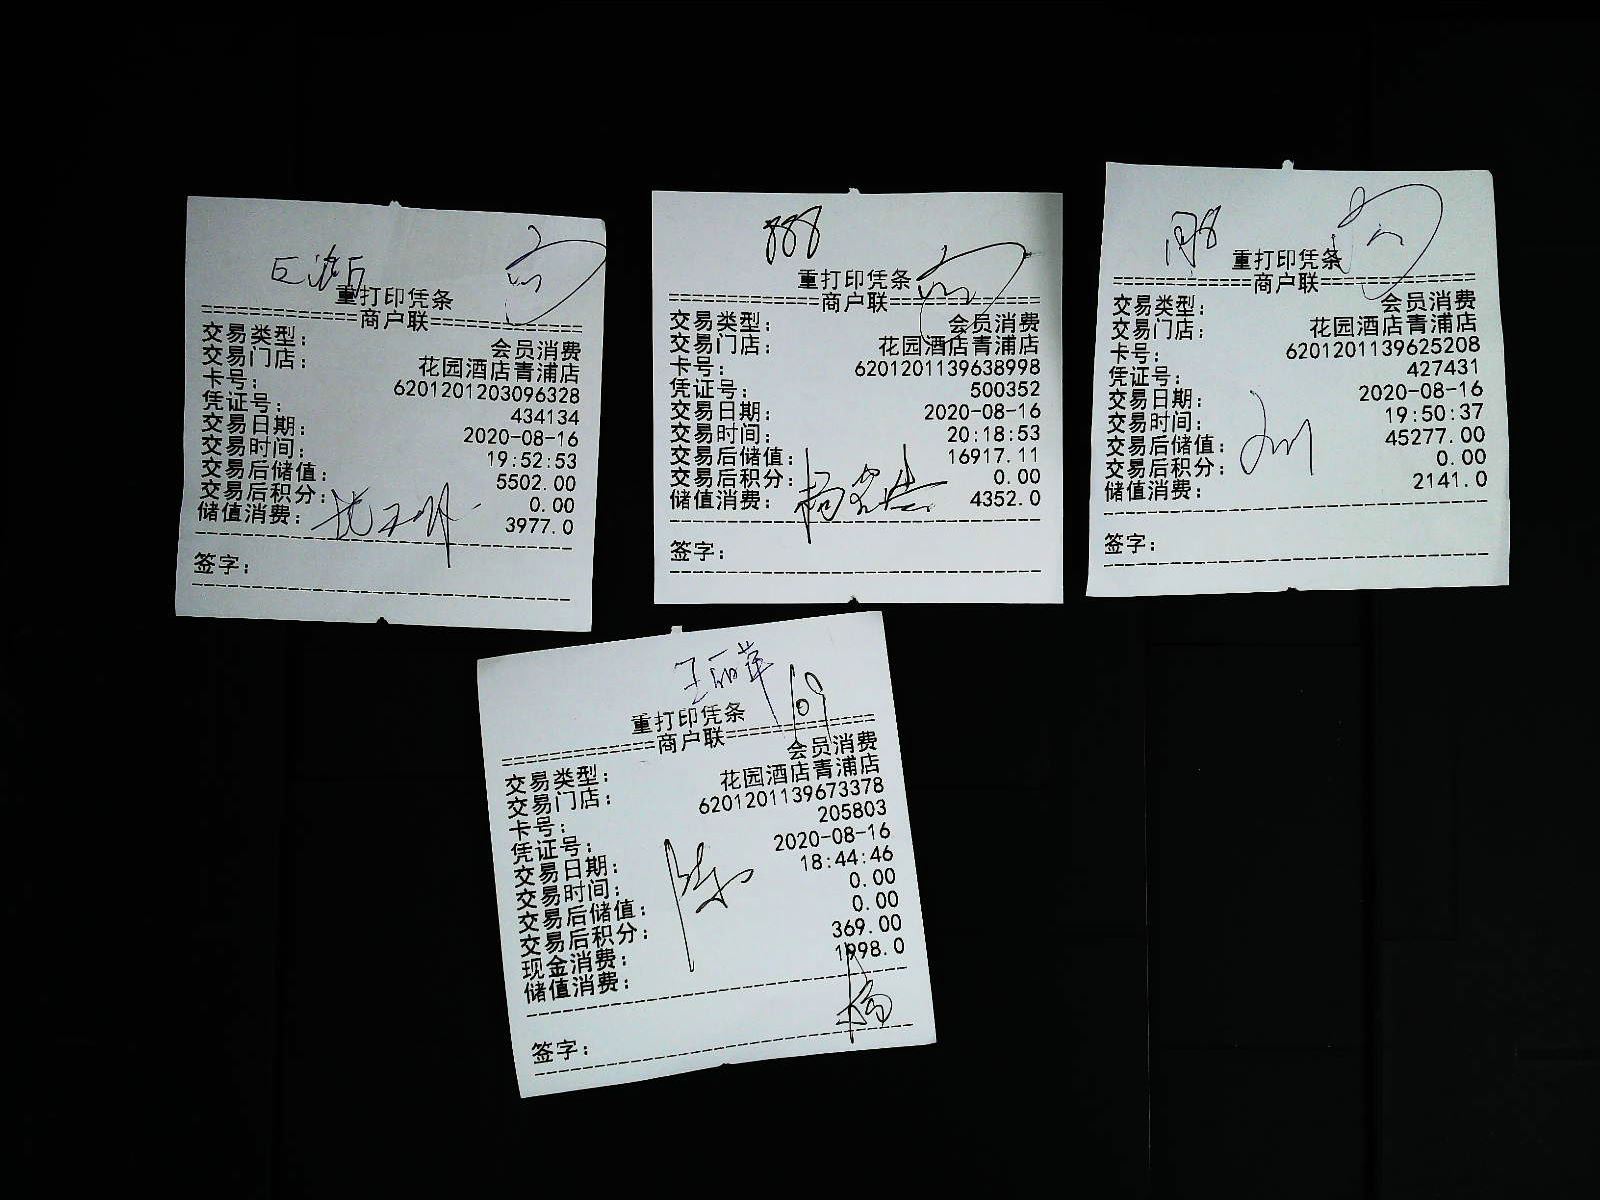 重打印凭条
==========商户联==========
交易类型： 会员消费
交易门店： 花园酒店青浦店
卡号： 6201201203096328
凭证号： 434134
交易日期： 2020-08-16
交易时间： 19:52:53
交易后储值： 5502.00
交易后积分： 0.00
储值消费： 3977.0
签字：
888
重打印凭条
==========商户联==========
交易类型： 会员消费
交易门店： 花园酒店青浦店
卡号： 6201201139638998
凭证号： 500352
交易日期： 2020-08-16
交易时间： 20:18:53
交易后储值： 16917.11
交易后积分： 0.00
储值消费： 4352.0
签字：
重打印凭条
==========商户联==========
交易类型： 会员消费
交易门店： 花园酒店青浦店
卡号： 6201201139625208
凭证号： 427431
交易日期： 2020-08-16
交易时间： 19:50:37
交易后储值： 45277.00
交易后积分： 0.00
储值消费： 2141.0
签字：
王丽萍
重打印凭条
==========商户联==========
交易类型： 会员消费
交易门店： 花园酒店青浦店
卡号： 6201201139673378
凭证号： 205803
交易日期： 2020-08-16
交易时间： 18:44:46
交易后储值： 0.00
交易后积分： 0.00
现金消费： 369.00
储值消费： 1998.0
杨
签字：